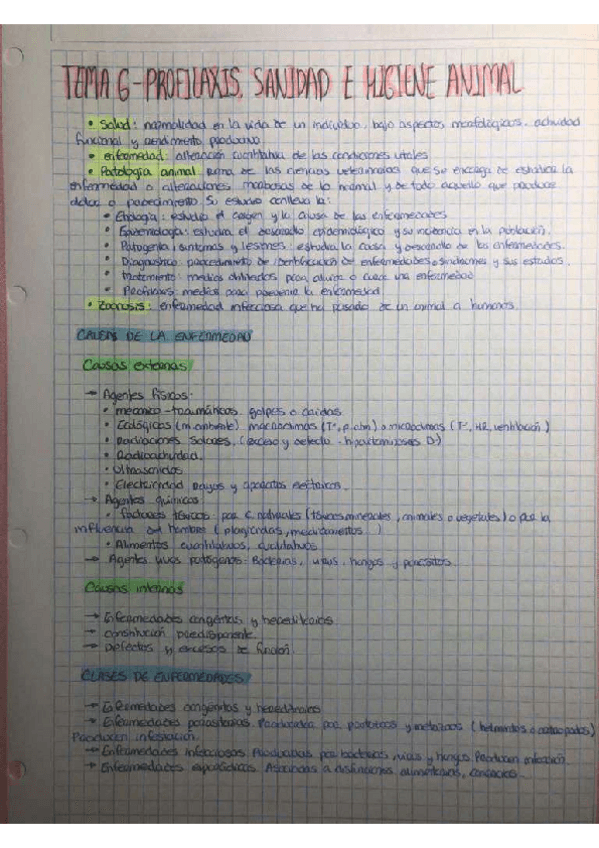 TEMA 6 - PROFILAXIS, SANIDAD E HIGIENE ANIMAL
• Salud: normalidad en la vida de un individuo, bajo aspectos morfológicos, actividad
funcional y rendimiento productivo
• enfermedad: alteración cuantitativa de las condiciones vitales
• Patología animal: rama de las ciencias veterinarias que se encarga de estudiar la
enfermedad o alteraciones morbosas de lo normal y de todo aquello que produce
dolor o padecimiento. Su estudio conlleva la:
• Etiología: estudia el origen y la causa de las enfermedades
• Epidemiología: estudia el desarrollo epidemiológico y su incidencia en la población.
• Patogenia, síntomas y lesiones: estudia la causa y desarrollo de las enfermedades.
• Diagnóstico: procedimiento de identificación de enfermedades o síndromes y sus estados.
• Tratamiento: medios utilizados para aliviar o curar una enfermedad
• Profilaxis: medios para prevenir la enfermedad
• Zoonosis: enfermedad infecciosa que ha pasado de un animal a humanos.
CAUSAS DE LA ENFERMEDAD
Causas externas
→ Agentes físicos:
• mecánico-traumáticos: golpes o caídas
• Ecológicas (m. ambiente) macroclimas (Tª, p. atm) o microclimas (Tª, HR, ventilación)
• Radiaciones Solares. (exceso y defecto - hipovitaminosis D)
• Radioactividad.
• Ultrasonidos
• Electricidad Rayos y aparatos eléctricos.
→ Agentes químicos
• factores tóxicos: por c. naturales (tóxicos minerales, animales o vegetales) o por la
influencia del hombre (plaguicidas, medicamentos)
• Alimentos cuantitativos, cualitativos
→ Agentes vivos patógenos: Bacterias, virus, hongos y parásitos.
Causas internas
→ Enfermedades congénitas y hereditarias.
→ constitución predisponente.
→ Defectos y excesos de función.
CLASES DE ENFERMEDADES
→ Enfermedades congénitas y hereditarias
→ Enfermedades parasitarias. Producidas por protozoos y metazoos (helmintos o artrópodos)
Producen infestación.
→ Enfermedades infecciosas. Producidas por bacterias, virus y hongos. Producen infección.
→ Enfermedades esporádicas. Asociadas a disfunciones alimentarias, carencias.